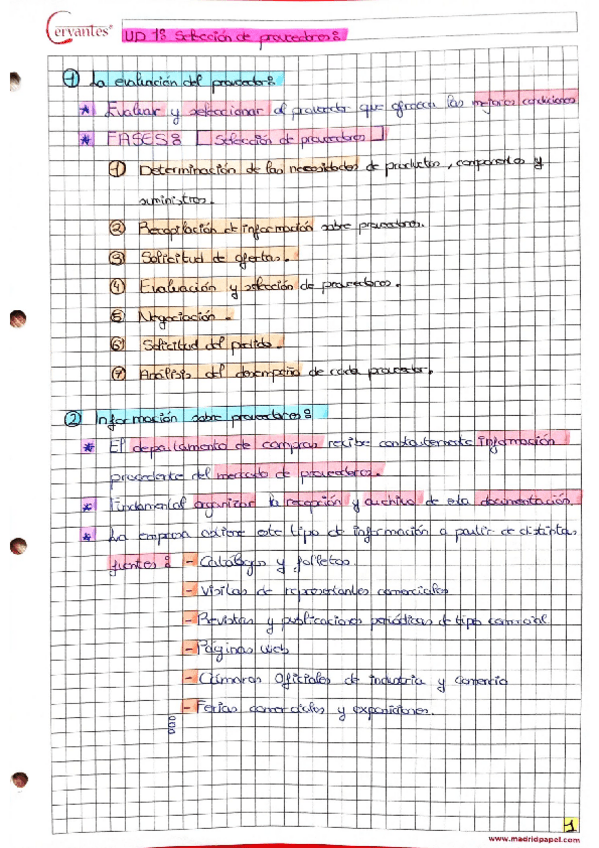 Cervantes®
UD 1: Selección de proveedores:
① La evaluación del proveedor:
* Evaluar y seleccionar al proveedor que ofrecen las mejores condiciones
* FASES: [Selección de proveedores]
① Determinación de las necesidades de productos, componentes y
suministros.
② Recopilación de información sobre proveedores.
③ Solicitud de ofertas.
④ Evaluación y selección de proveedores.
⑤ Negociación.
⑥ Solicitud del pedido.
⑦ Análisis del desempeño de cada proveedor.
② Información sobre proveedores:
* El departamento de compras recibe constantemente información
procedente del mercado de proveedores.
* Fundamental organizar la recepción y archivo de esta documentación.
* La empresa obtiene este tipo de información a partir de distintas
fuentes: - Catálogos y folletos
- Visitas de representantes comerciales
- Revistas y publicaciones periódicas de tipo comercial
- Páginas web
- Cámaras Oficiales de industria y comercio
- Ferias comerciales y exposiciones.
1
www.madridpapel.com